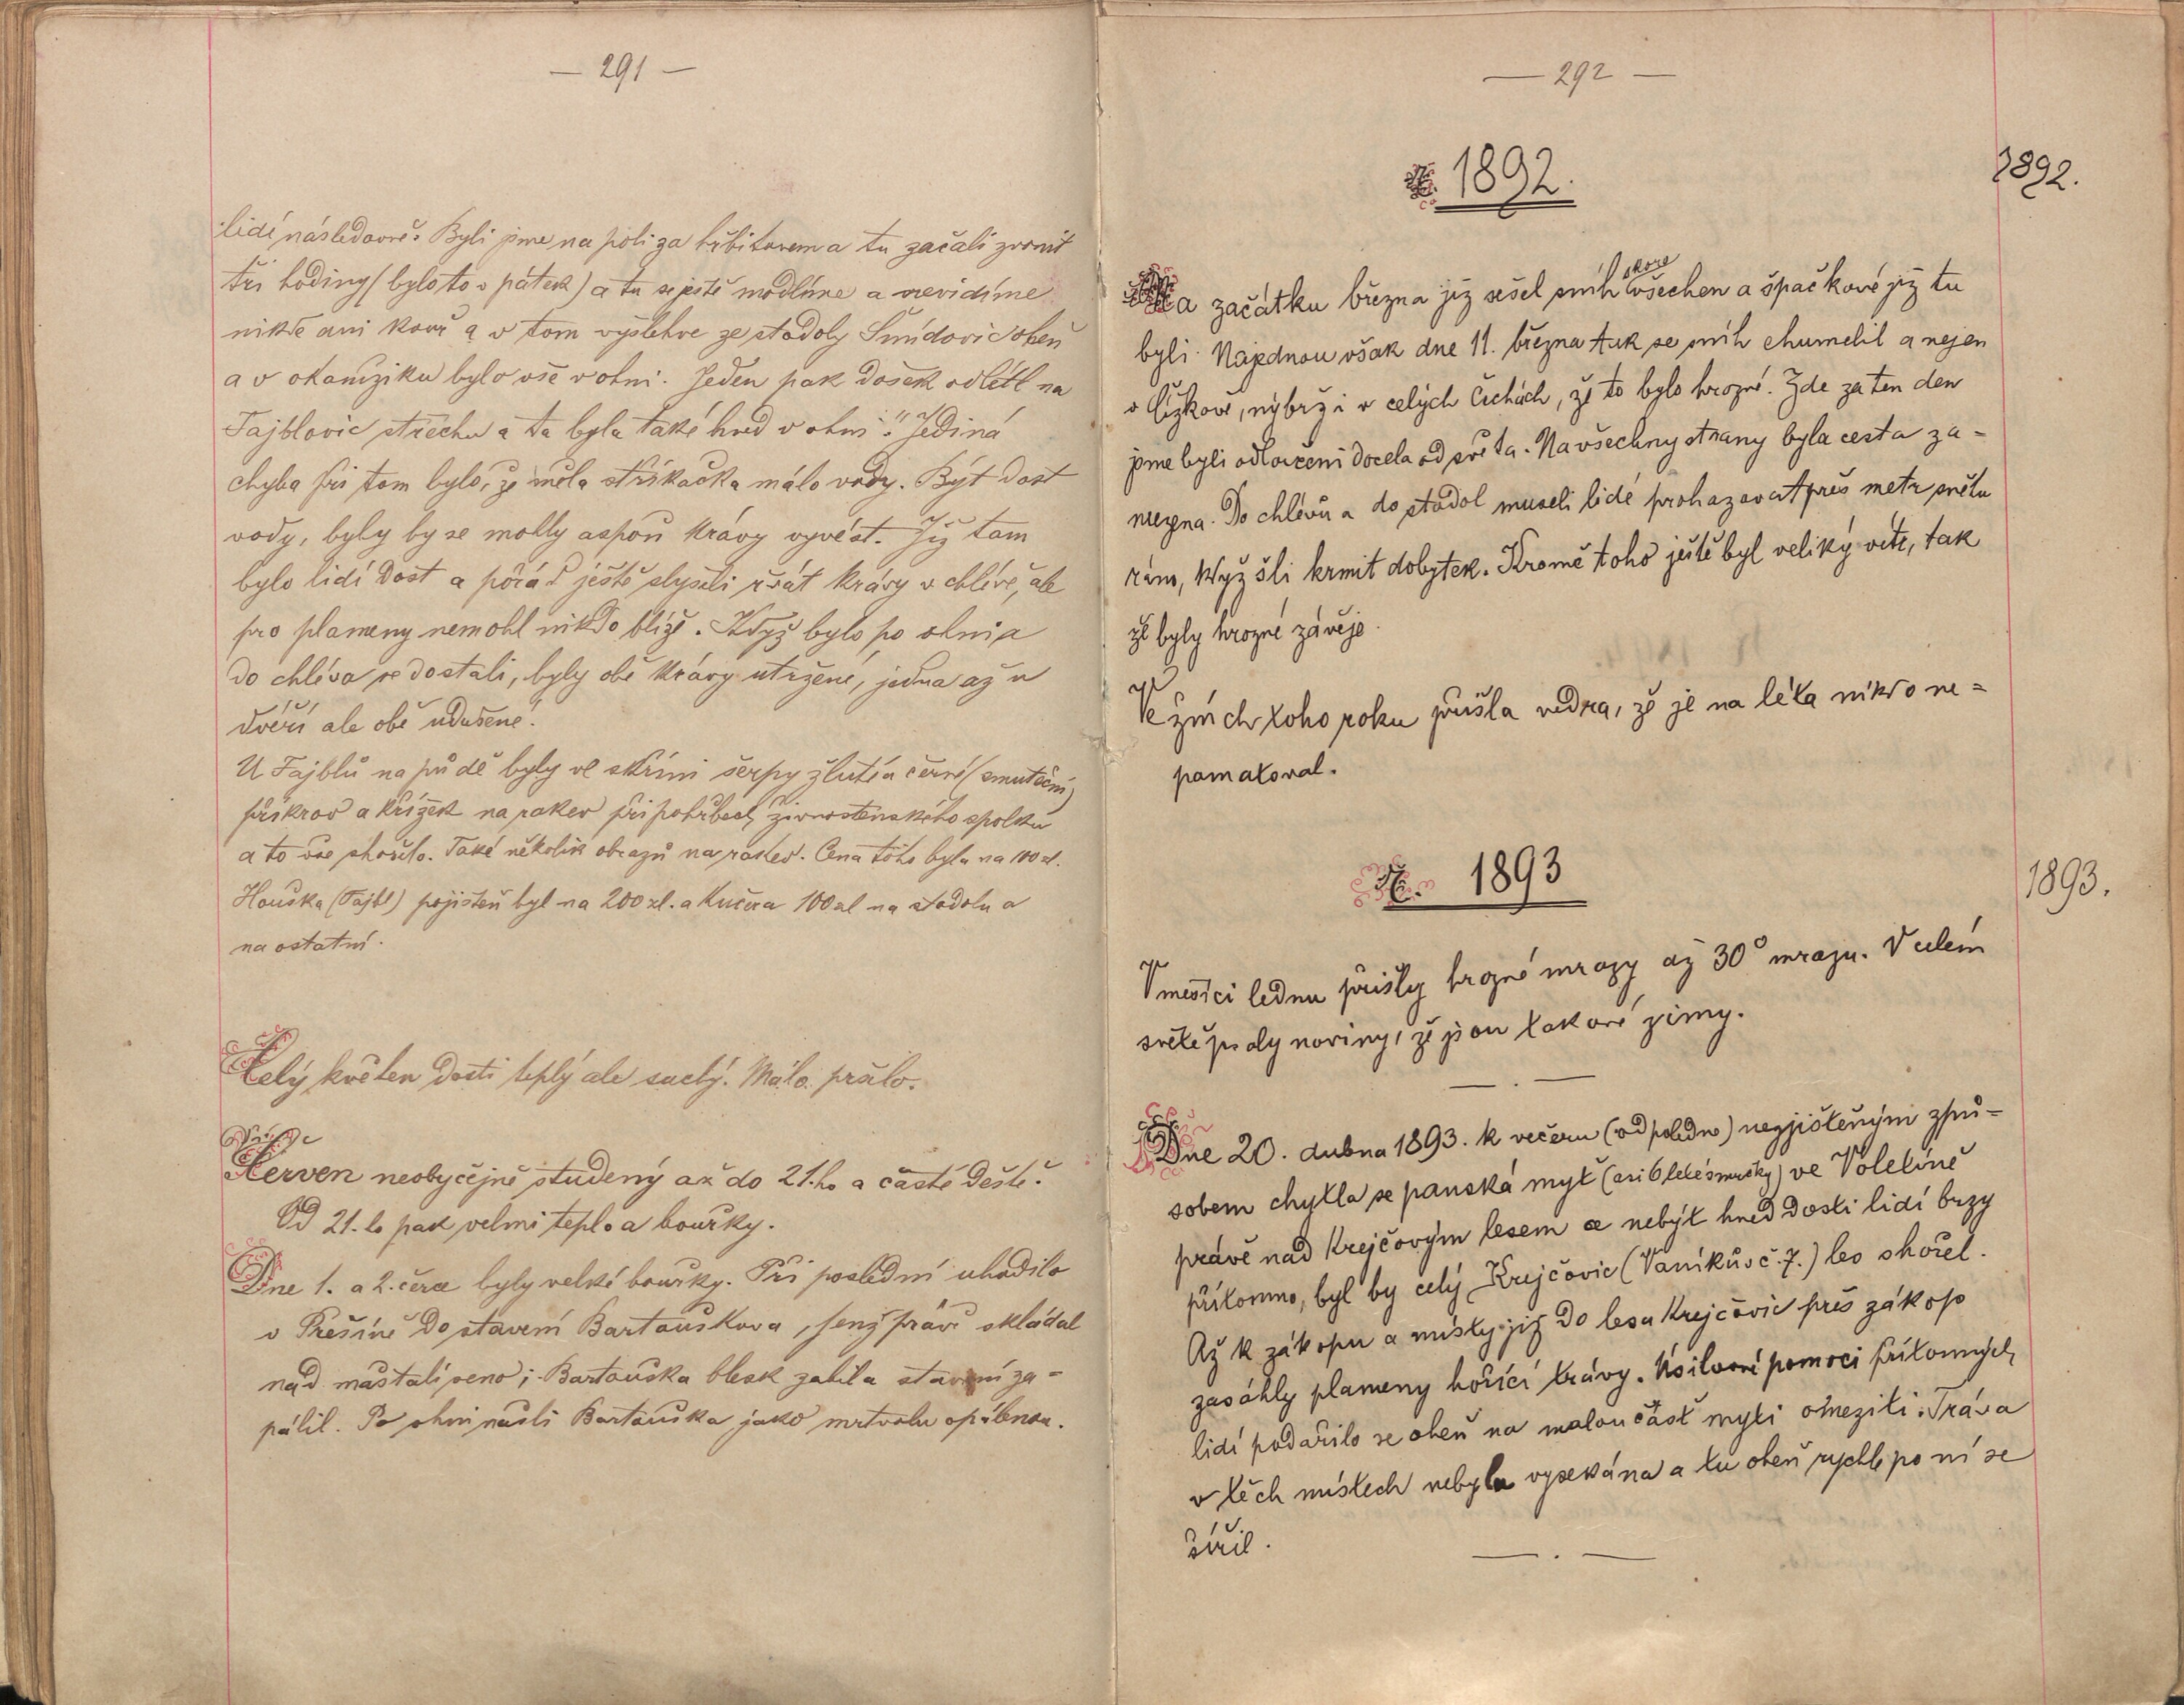 — 291 —
lidé následovně: Byli jsme na poli za hřbitovem a tu začali zvonit
tři hodiny (bylo to v pátek) a tu se ještě modlíme a nevidíme
nikde ani kouř a v tom vyšlehne ze stodoly Šmídovic oheň
a v okamžiku bylo vše v ohni. Jeden pak došek odlétl na
Fajblovic střechu a ta byla také hned v ohni." Jediná
chyba při tom bylo, že měla stříkačka málo vody. Být dost
vody, byly by se mohly aspoň krávy vyvést. Již tam
bylo lidí dost a pořád ještě slyšeli řvát krávy v chlévě, ale
pro plameny nemohl nikdo blíže. Když bylo po ohni a
do chléva se dostali, byly obě krávy utržené, jedna až u
dveří ale obě udušené.
U Fajblů na půdě byly ve skříni šerpy žluté a černé (smuteční)
příkrov a křížek na rakev při pohřbech živnostenského spolku
a to vše shořelo. Také několik obrazů na rakev. Cena toho byla na 100 zl.
Houška (Fajbl) pojištěn byl na 200 zl. a Kučera 100 zl na stodolu a
na ostatní.
Celý květen dosti teplý ale suchý. Málo pršelo.
Červen neobyčejně studený až do 21.ho a časté deště.
Od 21.ho pak velmi teplo a bouřky.
Dne 1. a 2. čerce byly velké bouřky. Při poslední uhodilo
v Přešíně do stavení Bartouškova, jenž právě skládal
nad maštalí seno; Bartouška blesk zabil a stavení za=
pálil. Po ohni našli Bartouška jako mrtvolu opálenou.
— 292 —
R. 1892.
1892.
Na začátku března již sešel sníh skoro všechen a špačkové již tu
byli. Najednou však dne 11. března tak se sníh chumelil a nejen
v Čížkově, nýbrž i v celých Čechách, že to bylo hrozné. Zde za ten den
jsme byli odloučeni docela od světa. Na všechny strany byla cesta za=
mezena. Do chlévů a do stodol museli lidé prohazovat přes metr sněhu
ráno, když šli krmit dobytek. Kromě toho ještě byl veliký vítr, tak
že byly hrozné závěje.
Ve žních toho roku přišla vedra, že je na léta nikdo ne=
pamatoval.
R. 1893
1893.
V měsíci lednu přišly hrozné mrazy až 30° mrazu. V celém
světě psaly noviny, že jsou takové zimy.
— . —
Dne 20. dubna 1893. k večeru (odpoledne) nezjištěným způ=
sobem chytla se panská myť (asi 6 leté smrčky) ve Voletíně
právě nad Krejčovým lesem a nebýt hned dosti lidí brzy
přítomno, byl by celý Krejčovic (Vaníkův č. 7.) les shořel.
Až k zákopu a místy již do lesa Krejčovic přes zákop
zasáhly plameny hořící trávy. Úsilovné pomoci přítomných
lidí podařilo se oheň na malou část myti omeziti. Tráva
v těch místech nebyla vysekána a tu oheň rychle po ní se
šířil.
— . —